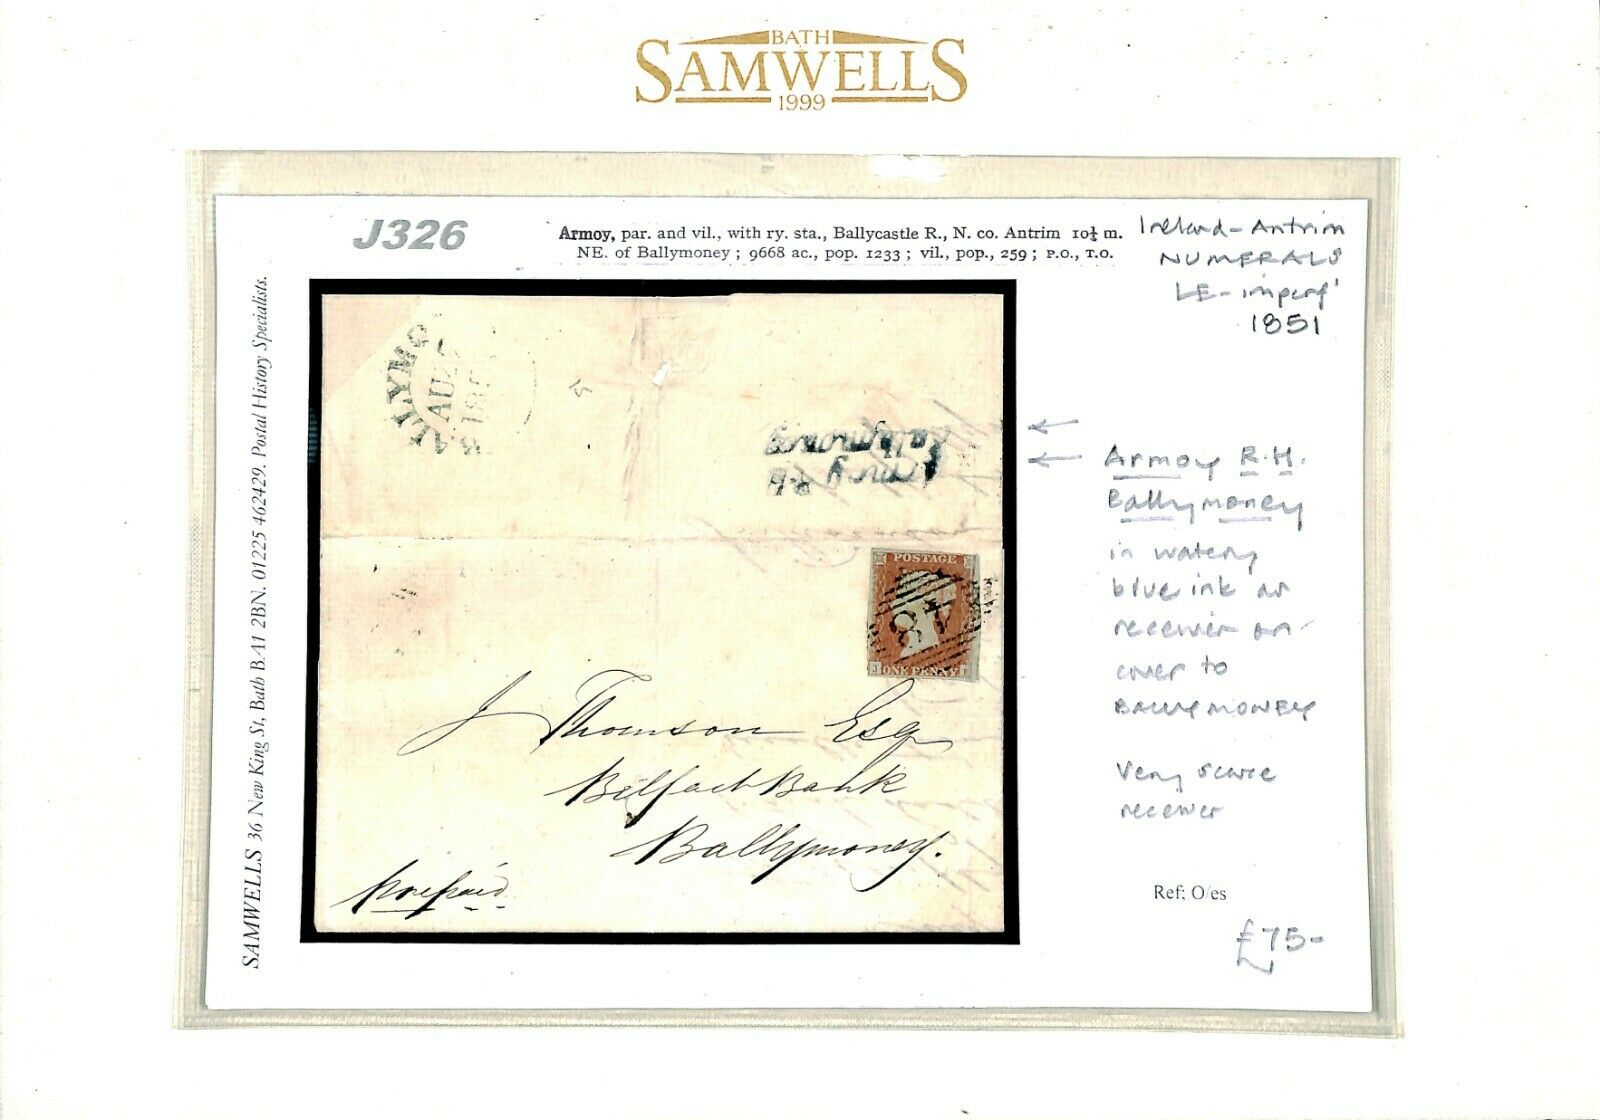 BATH
SAMWELLS
1999
J326
Armoy, par. and vil., with ry. sta., Ballycastle R., N. co. Antrim 10½ m.
NE. of Ballymoney ; 9668 ac., pop. 1233 ; vil., pop., 259 ; P.O., T.O.
Ireland - Antrim
NUMERALS
LE - imperf'
1851
SAMWELLS 36 New King St, Bath BA1 2BN. 01225 462429. Postal History Specialists.
BALLYMO
AU
18
Ballymoney
Armoy R.H
POSTAGE
84
J
ONE PENNY
J Thomson Esq
Belfast Bank
Ballymoney.
Prepaid
Armoy R.H.
Ballymoney
in watery
blue ink as
receiver on
cover to
BALLYMONEY
Very scarce
receiver
Ref; O/es
£75-